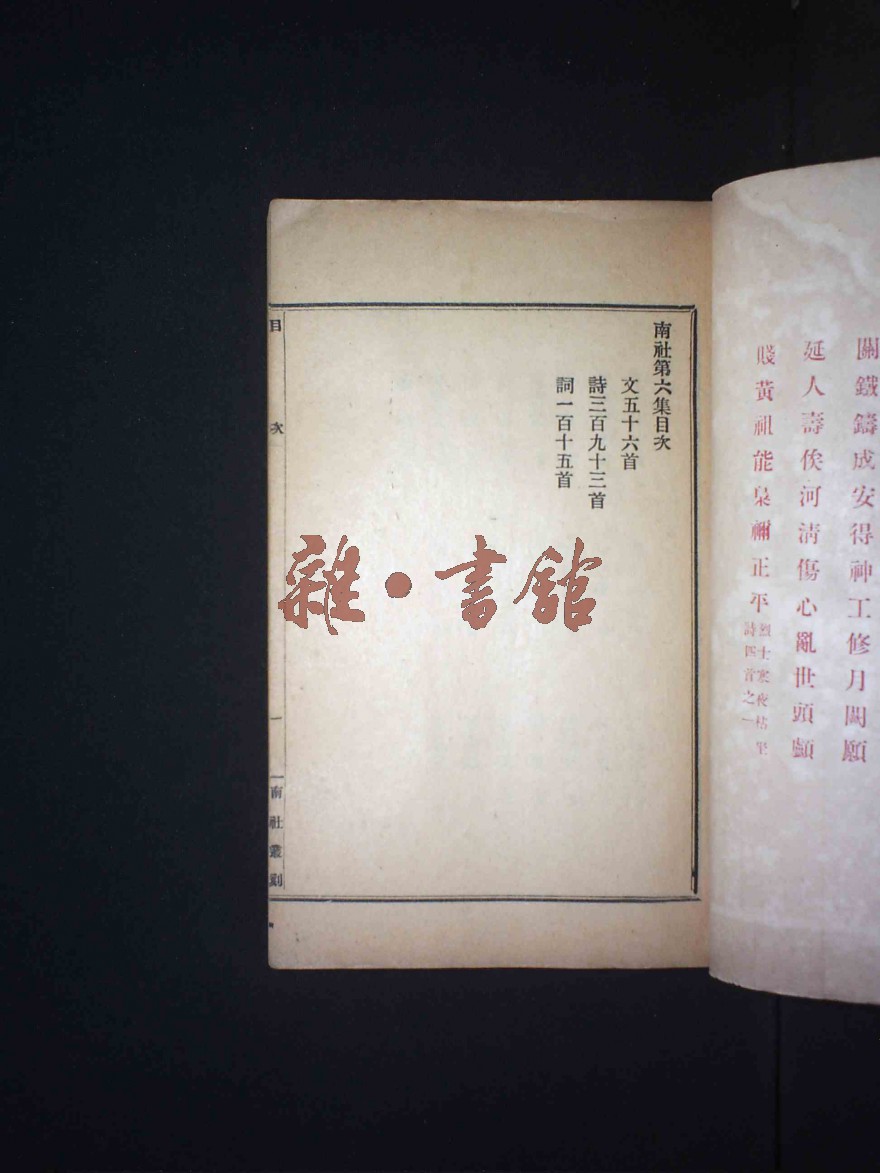 關鐵鑄成安得神工修月闕願
延人壽俟河清傷心亂世頭顱
賤黃祖能梟禰正平
烈士寒夜
詩四首之一
南社第六集目次
文五十六首
詩三百九十三首
詞一百十五首
目次
一
南社叢刻
雜·書館